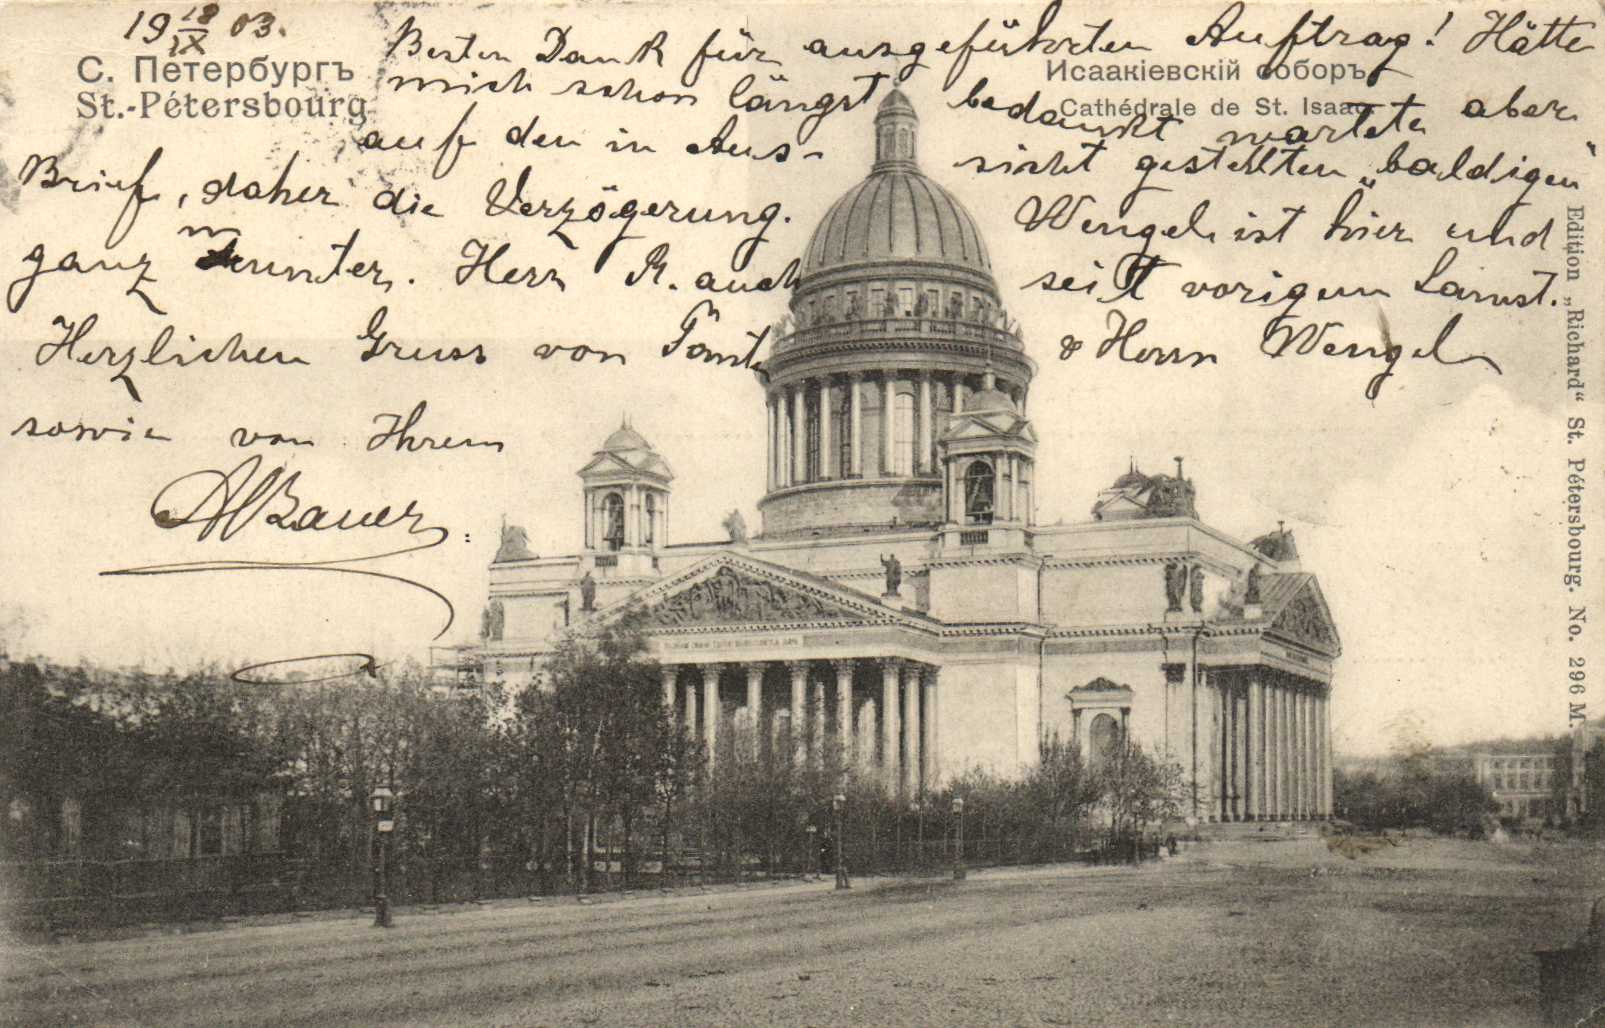 19 18/IX 03.
С. Петербургъ
St.-Pétersbourg
Исаакіевскій соборъ
Cathédrale de St. Isaac
Besten Dank für ausgeführten Auftrag! Hätte
mich schon längst bedankt wartete aber
auf den in Aus- sicht gestellten „baldigen"
Brief, daher die Verzögerung. Wengel ist hier und
ganz munter. Herr R. auch seit vorigem Samst.
Herzlichen Gruss von Tante & Herrn Wengel
sowie von Ihrem
ABauer.
Edition „Richard“ St. Pétersbourg. No. 296 M.